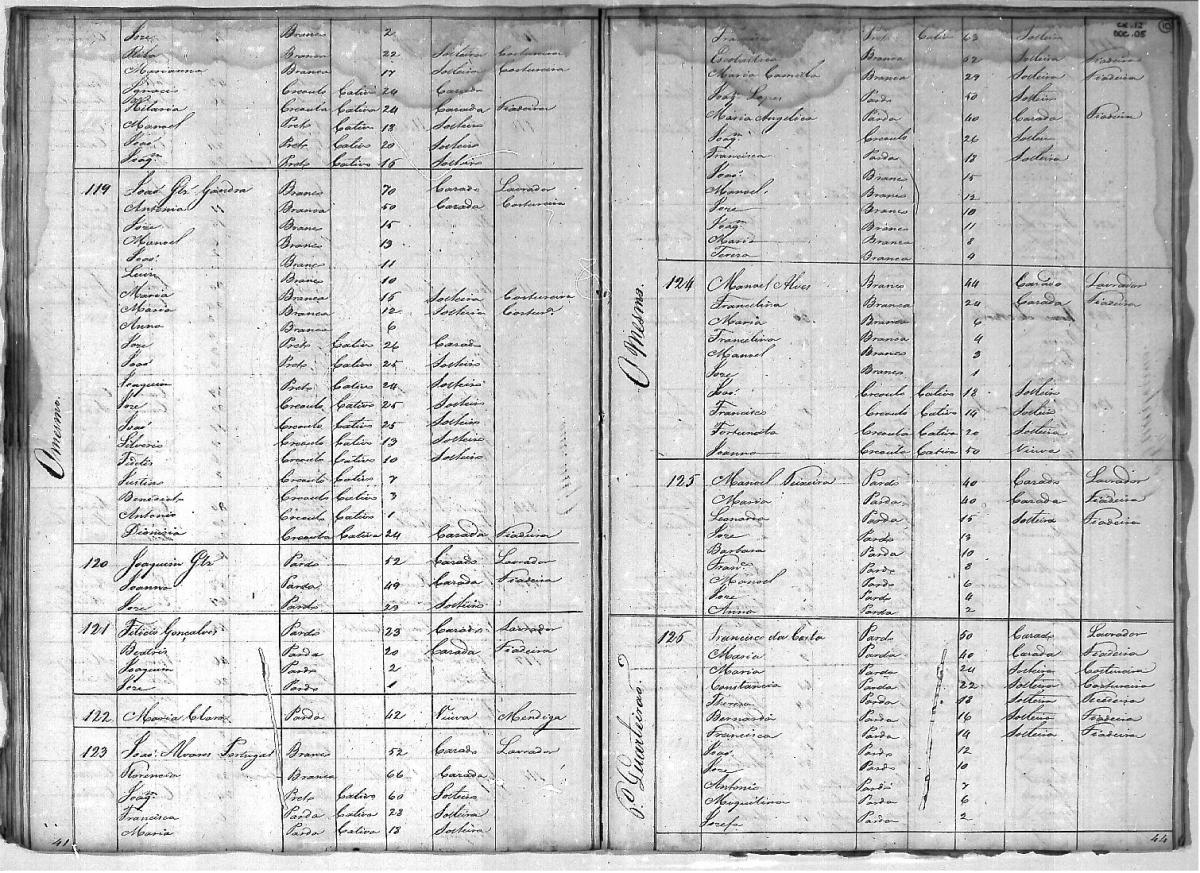 Joze Branco 2
Rita Branca 22 Solteira Costureira
Marianna Branca 17 Solteira Costureira
Ignacio Creoulo Cativo 24 Cazado
Hilaria Creoula Cativa 24 Cazada Fiadeira
Manoel Preto Cativo 18 Solteiro
Joaõ Preto Cativo 20 Solteiro
Joaqm Preto Cativo 16 Solteiro
119 Joaõ Glz Gandra Branco 70 Cazado Lavrador
Antonia Branca 50 Cazada Costureira
Joze Branco 15
Manoel Branco 13
Joaõ Branco 11
Luiz Branco 10
Maria Branca 16 Solteira Costureira
Maria Branca 12 Solteira
Anna Branca 6
Joze Preto Cativo 26 Cazado
Joaõ Preto Cativo 25 Solteiro
Joaquim Preto Cativo 24 Solteiro
Joze Creoulo Cativo 25 Solteiro
Joaõ Creoulo Cativo 25 Solteiro
Silverio Creoulo Cativo 13 Solteiro
Creoulo Cativo 10 Solteiro
Creoulo Cativo 7
Benedicto Creoulo Cativo 3
Antonio Creoulo Cativo 1
Dionizia Creoula Cativa 24 Cazada Fiadeira
O mesmo.
120 Joaquim Glz Pardo 52 Cazado Lavrador
Joanna Parda 49 Cazada Fiadeira
Joze Pardo 23 Solteiro
121 Felicio Gonçalves Pardo 23 Cazado Lavrador
Beatriz Parda 20 Cazada Fiadeira
Joaquim Pardo 2
Joze Pardo 1
122 Maria Clara Parda 42 Viuva Mendiga
123 Joaõ Alvares Portugal Branco 52 Cazado Lavrador
Florencia Branca 66 Cazada
Joaqm Preto Cativo 60 Solteiro
Francisca Parda Cativa 23 Solteira
Maria Parda Cativa 18 Solteira
41
CX. 12
DOC. 05
10
Preto Cativo 63 Solteiro
Escolastica Branca 52 Solteira Fiadeira
Maria Camila Branca 29 Solteira Fiadeira
Joaqm Lopes Pardo 50 Solteiro
Maria Angelica Parda 40 Cazada Fiadeira
Joaqm Creoulo 26 Solteiro
Francisca Parda 19 Solteira
Joaõ Branco 15
Manoel Branco 12
Joze Branco 10
Joaqm Branco 11
Maria Branca 8
Tereza Branca 4
O mesmo.
124 Manoel Alves Branco 44 Cazado Lavrador
Francelina Branca 24 Cazada Fiadeira
Maria Branca 6
Francelina Branca 4
Manoel Branco 3
Joze Branco 1
Joaõ Creoulo Cativo 18 Solteiro
Francisco Creoulo Cativo 14 Solteiro
Fortunata Creoula Cativa 20 Solteira
Joanna Creoula Cativa 50 Viuva
125 Manoel Teixeira Pardo 40 Cazado Lavrador
Maria Parda 40 Cazada Fiadeira
Leonarda Parda 15 Solteira Fiadeira
Joze Pardo 13
Barbara Parda 10
Franco Pardo 8
Manoel Pardo 6
Joze Pardo 4
Anna Parda 2
6.º Quarteirão
126 Francisco da Costa Pardo 50 Cazado Lavrador
Maria Parda 40 Cazada Fiadeira
Maria Parda 24 Solteira Costureira
Constancia Parda 22 Solteira Costureira
Thereza Parda 18 Solteira Fiadeira
Bernarda Parda 16 Solteira Fiadeira
Francisca Parda 14 Solteira Fiadeira
Joaõ Pardo 12
Joze Pardo 10
Antonio Pardo 7
Miguelina Parda 6
Jozefa Parda 2
44